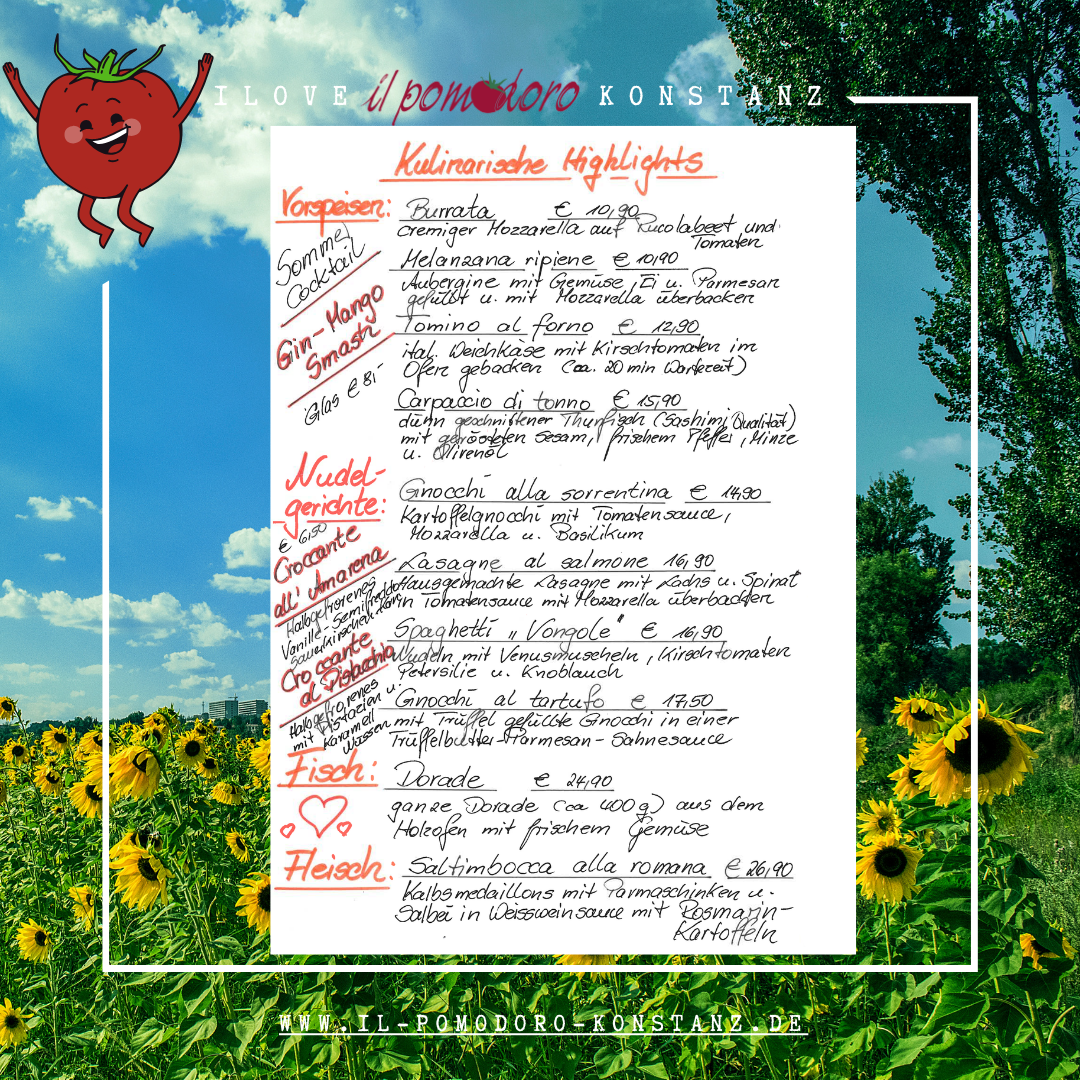 I LOVE il pomodoro KONSTANZ
Kulinarische Highlights
Vorspeisen:
Burrata € 10,90
cremiger Mozzarella auf Rucolabeet und
Tomaten
Melanzana ripiene € 10,90
Aubergine mit Gemüse, Ei u. Parmesan
gefüllt u. mit Mozzarella überbacken
Tomino al forno € 12,90
ital. Weichkäse mit Kirschtomaten im
Ofen gebacken (ca. 20 min Wartezeit)
Carpaccio di tonno € 15,90
dünn geschnittener Thunfisch (Sashimi Qualität)
mit geröstetem Sesam, frischem Pfeffer, Minze
u. Olivenöl
Sommer
Cocktail
Gin-Mango
Smash
Glas € 8,-
Nudel-
gerichte:
Gnocchi alla sorrentina € 14,90
Kartoffelgnocchi mit Tomatensauce,
Mozzarella u. Basilikum
Lasagne al salmone 16,90
Hausgemachte Lasagne mit Lachs u. Spinat
in Tomatensauce mit Mozzarella überbacken
Spaghetti „Vongole" € 16,90
Nudeln mit Venusmuscheln, Kirschtomaten
Petersilie u. Knoblauch
Gnocchi al tartufo € 17,50
mit Trüffel gefüllte Gnocchi in einer
Trüffelbutter-Parmesan-Sahnesauce
€ 6,50
Croccante
all' Amarena
Halbgefrorenes
Vanille-Semifreddo
Sauerkirschen
Croccante
al Pistacchio
Halbgefrorenes
mit Pistazien u.
Karamell
Fisch:
Dorade € 24,90
ganze Dorade (ca 400g) aus dem
Holzofen mit frischem Gemüse
Fleisch:
Saltimbocca alla romana € 26,90
Kalbsmedaillons mit Parmaschinken u.
Salbei in Weissweinsauce mit Rosmarin-
Kartoffeln
WWW.IL-POMODORO-KONSTANZ.DE